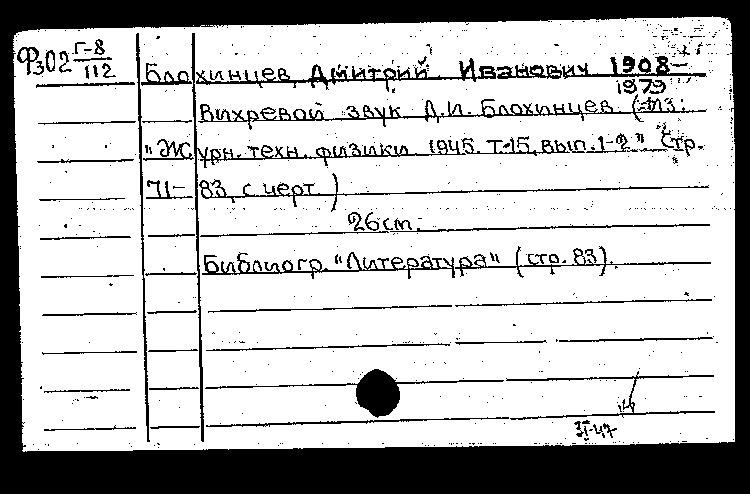 Фз02 Г-8/112
Блохинцев, Дмитрий Иванович 1908-
1979
Вихревой звук. Д.И. Блохинцев (Из:
"Журн. техн. физики 1945. Т-15, вып. 1-2" Стр.
71-83, с черт.)
26 cm.
Библиогр. "Литература" (стр. 83).